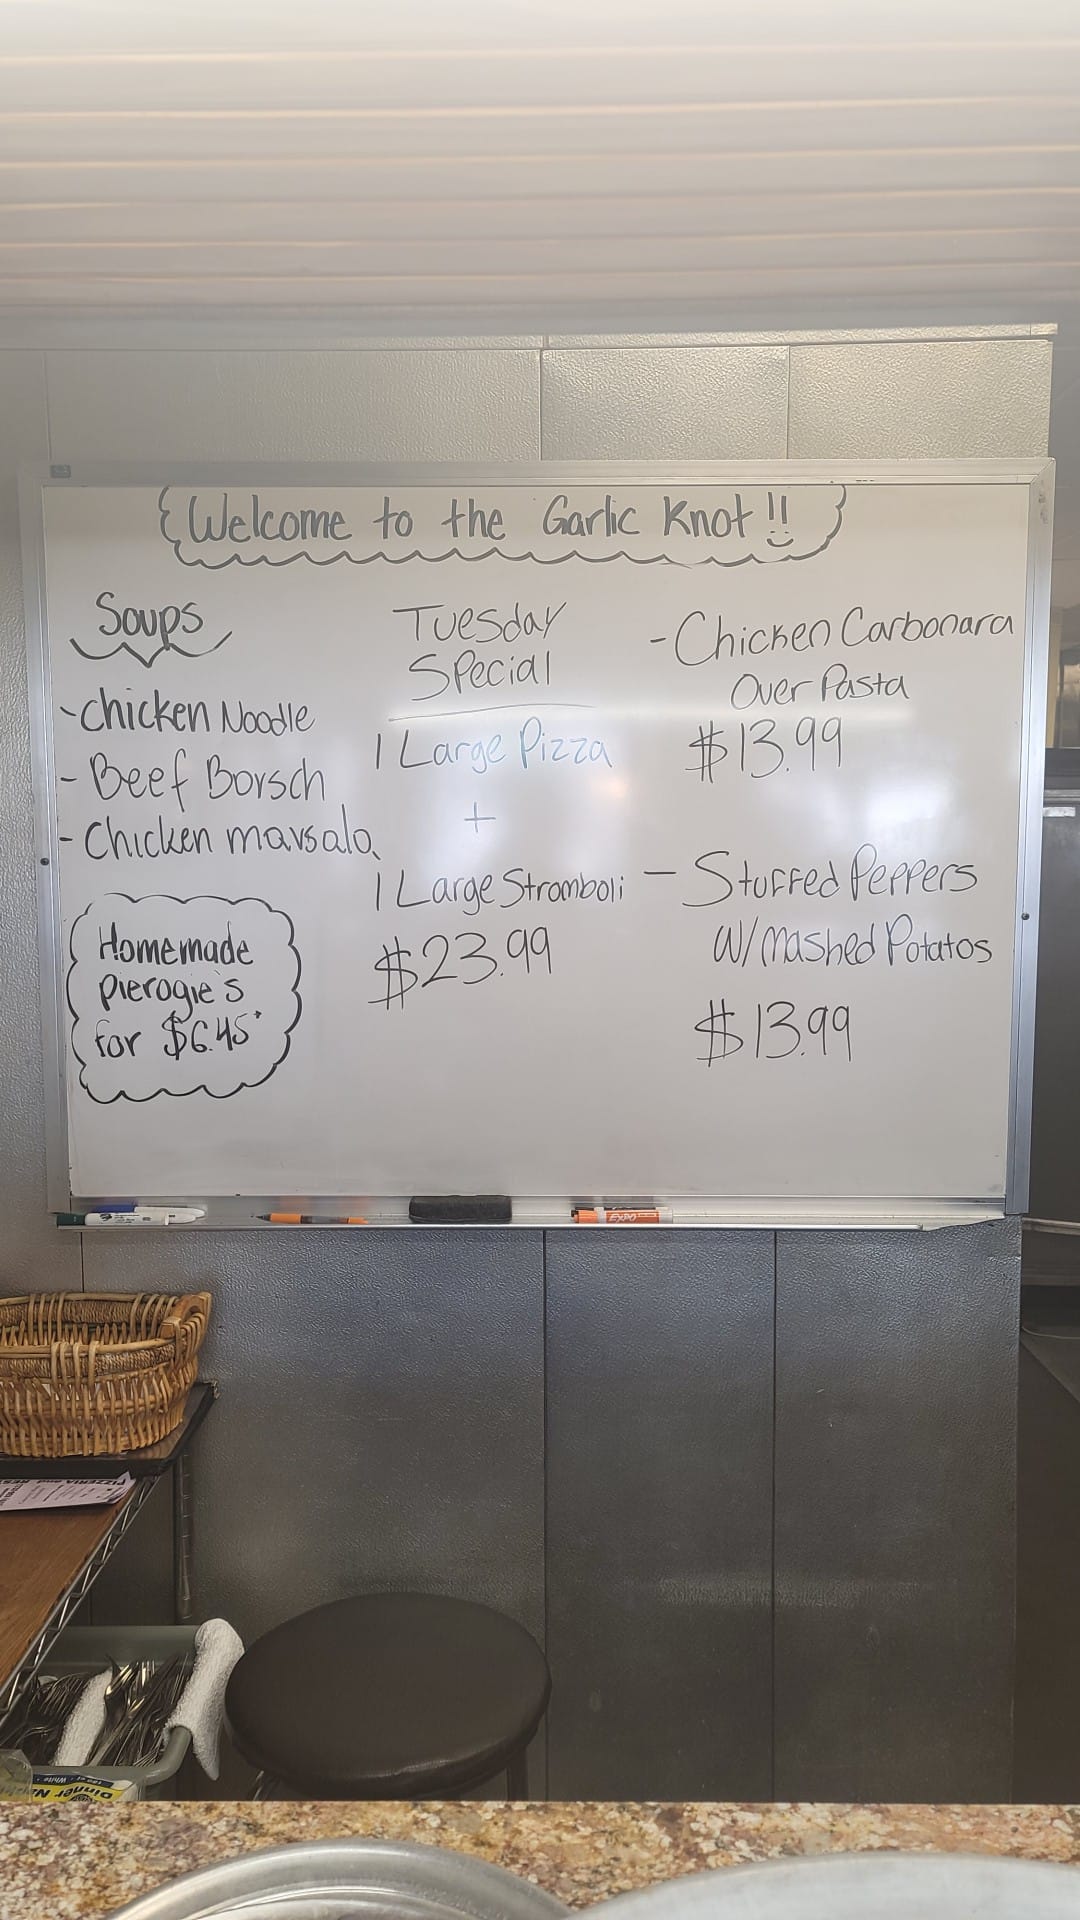 Welcome to the Garlic Knot!!
Soups
-Chicken Noodle
- Beef Borsch
- Chicken marsala
Homemade
pierogie's
for $6.45*
Tuesday
Special
1 Large Pizza
+
1 Large Stromboli
$23.99
- Chicken Carbonara
Over Pasta
$13.99
- Stuffed Peppers
W/ Mashed Potatos
$13.99
EXPO
PIZZERIA and
Dinner
White